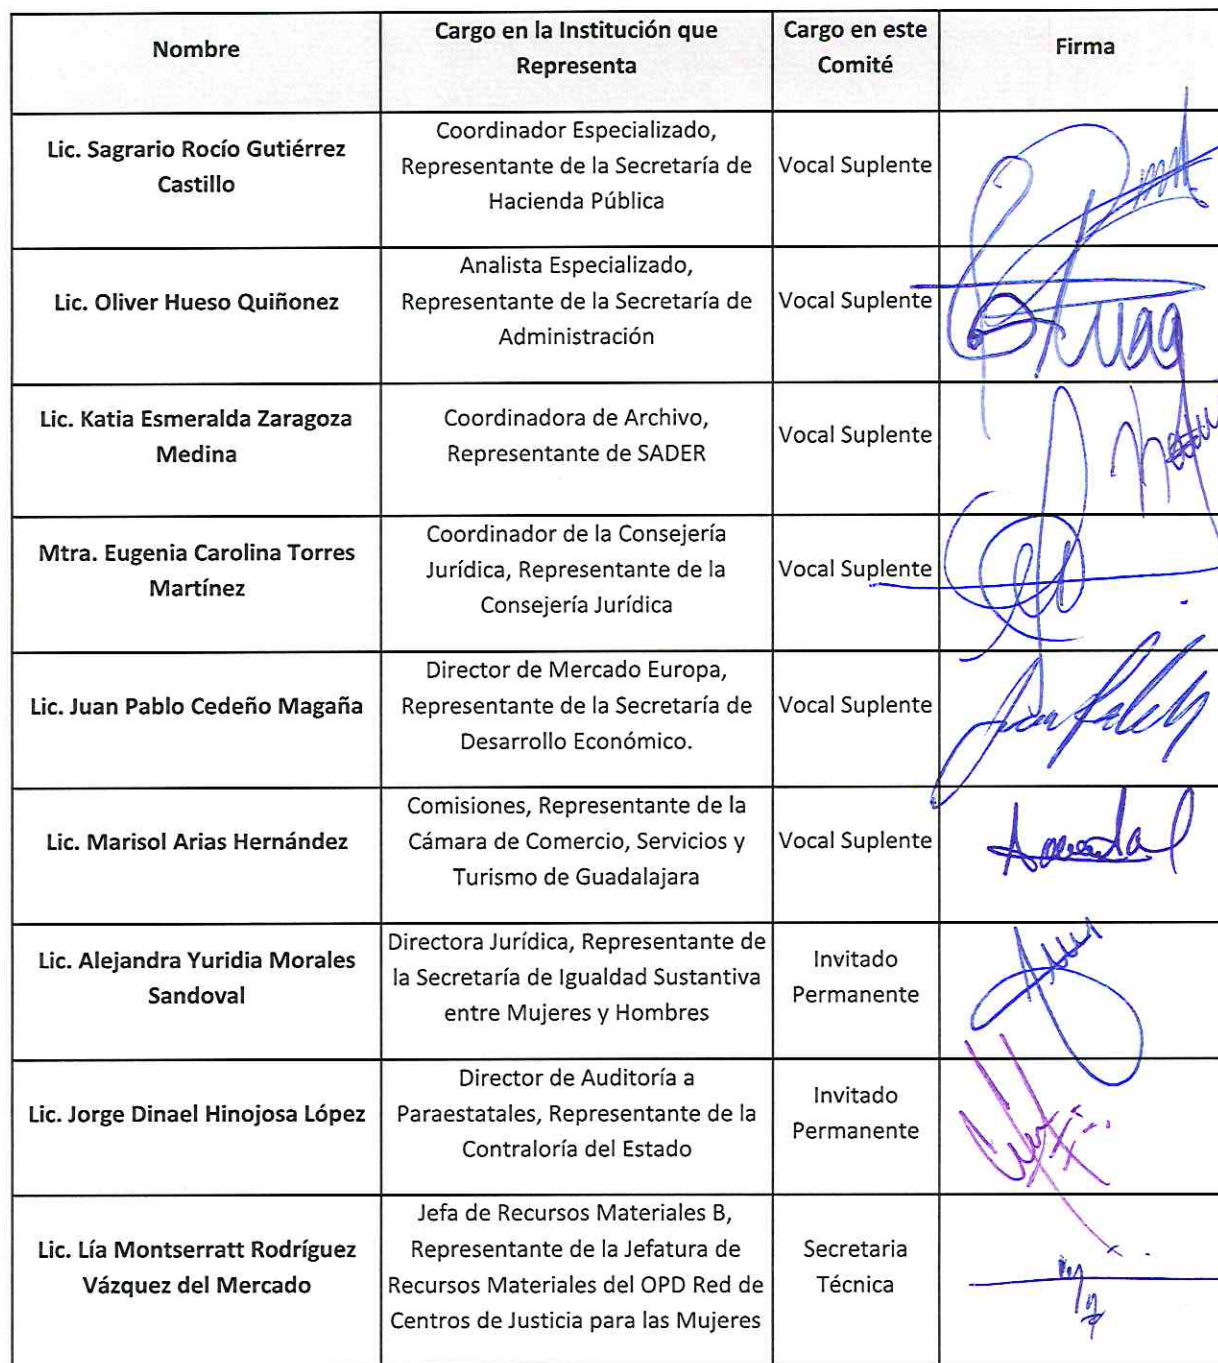 Nombre
Cargo en la Institución que
Representa
Cargo en este
Comité
Firma
Lic. Sagrario Rocío Gutiérrez
Castillo
Coordinador Especializado,
Representante de la Secretaría de
Hacienda Pública
Vocal Suplente
Lic. Oliver Hueso Quiñonez
Analista Especializado,
Representante de la Secretaría de
Administración
Vocal Suplente
Lic. Katia Esmeralda Zaragoza
Medina
Coordinadora de Archivo,
Representante de SADER
Vocal Suplente
Mtra. Eugenia Carolina Torres
Martínez
Coordinador de la Consejería
Jurídica, Representante de la
Consejería Jurídica
Vocal Suplente
Lic. Juan Pablo Cedeño Magaña
Director de Mercado Europa,
Representante de la Secretaría de
Desarrollo Económico.
Vocal Suplente
Lic. Marisol Arias Hernández
Comisiones, Representante de la
Cámara de Comercio, Servicios y
Turismo de Guadalajara
Vocal Suplente
Lic. Alejandra Yuridia Morales
Sandoval
Directora Jurídica, Representante de
la Secretaría de Igualdad Sustantiva
entre Mujeres y Hombres
Invitado
Permanente
Lic. Jorge Dinael Hinojosa López
Director de Auditoría a
Paraestatales, Representante de la
Contraloría del Estado
Invitado
Permanente
Lic. Lía Montserratt Rodríguez
Vázquez del Mercado
Jefa de Recursos Materiales B,
Representante de la Jefatura de
Recursos Materiales del OPD Red de
Centros de Justicia para las Mujeres
Secretaria
Técnica